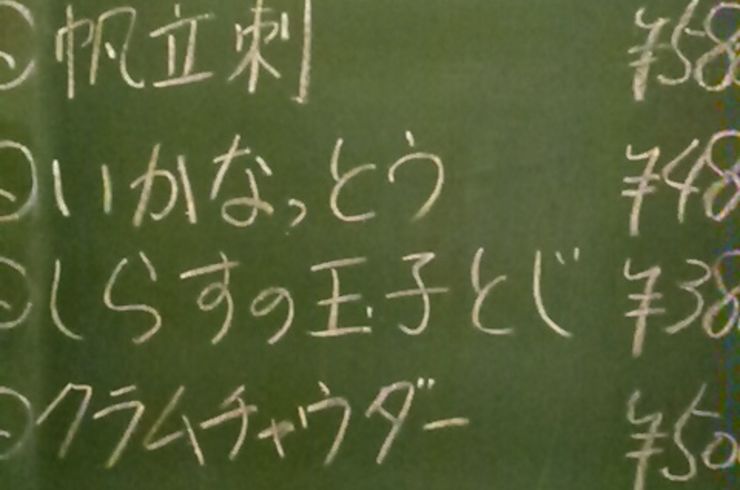 帆立刺 ¥58
いかなっとう ¥48
しらすの玉子とじ ¥38
クラムチャウダー ¥50